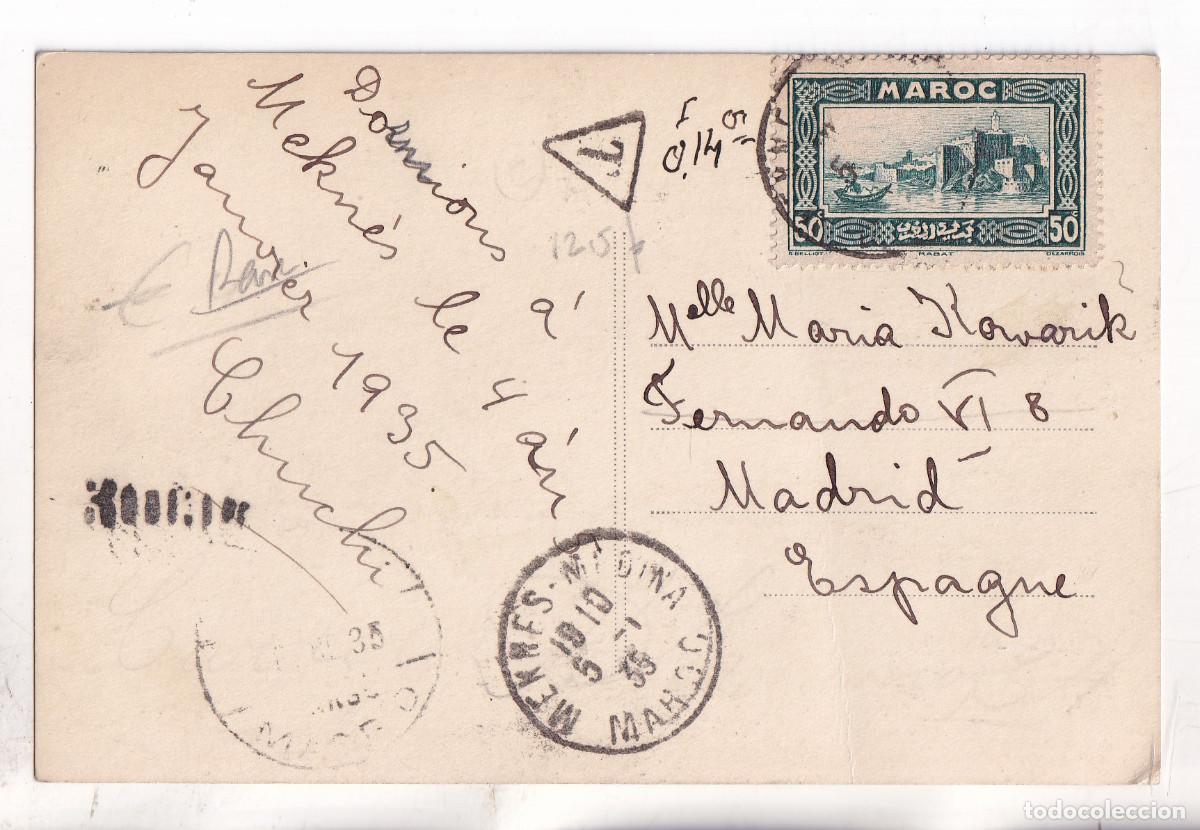 Dormions à
Meknés le 4 án
Janvier 1935
Chuchi
Rare
T
0,14
1205
MAROC
50c
50c
RABAT
DEZARROIS
Melle Maria Kowarik
Fernando VI 8
Madrid
Espagne
MEKNES-MEDINA
18 10
5 -1
35
MAROC
35
todocoleccion